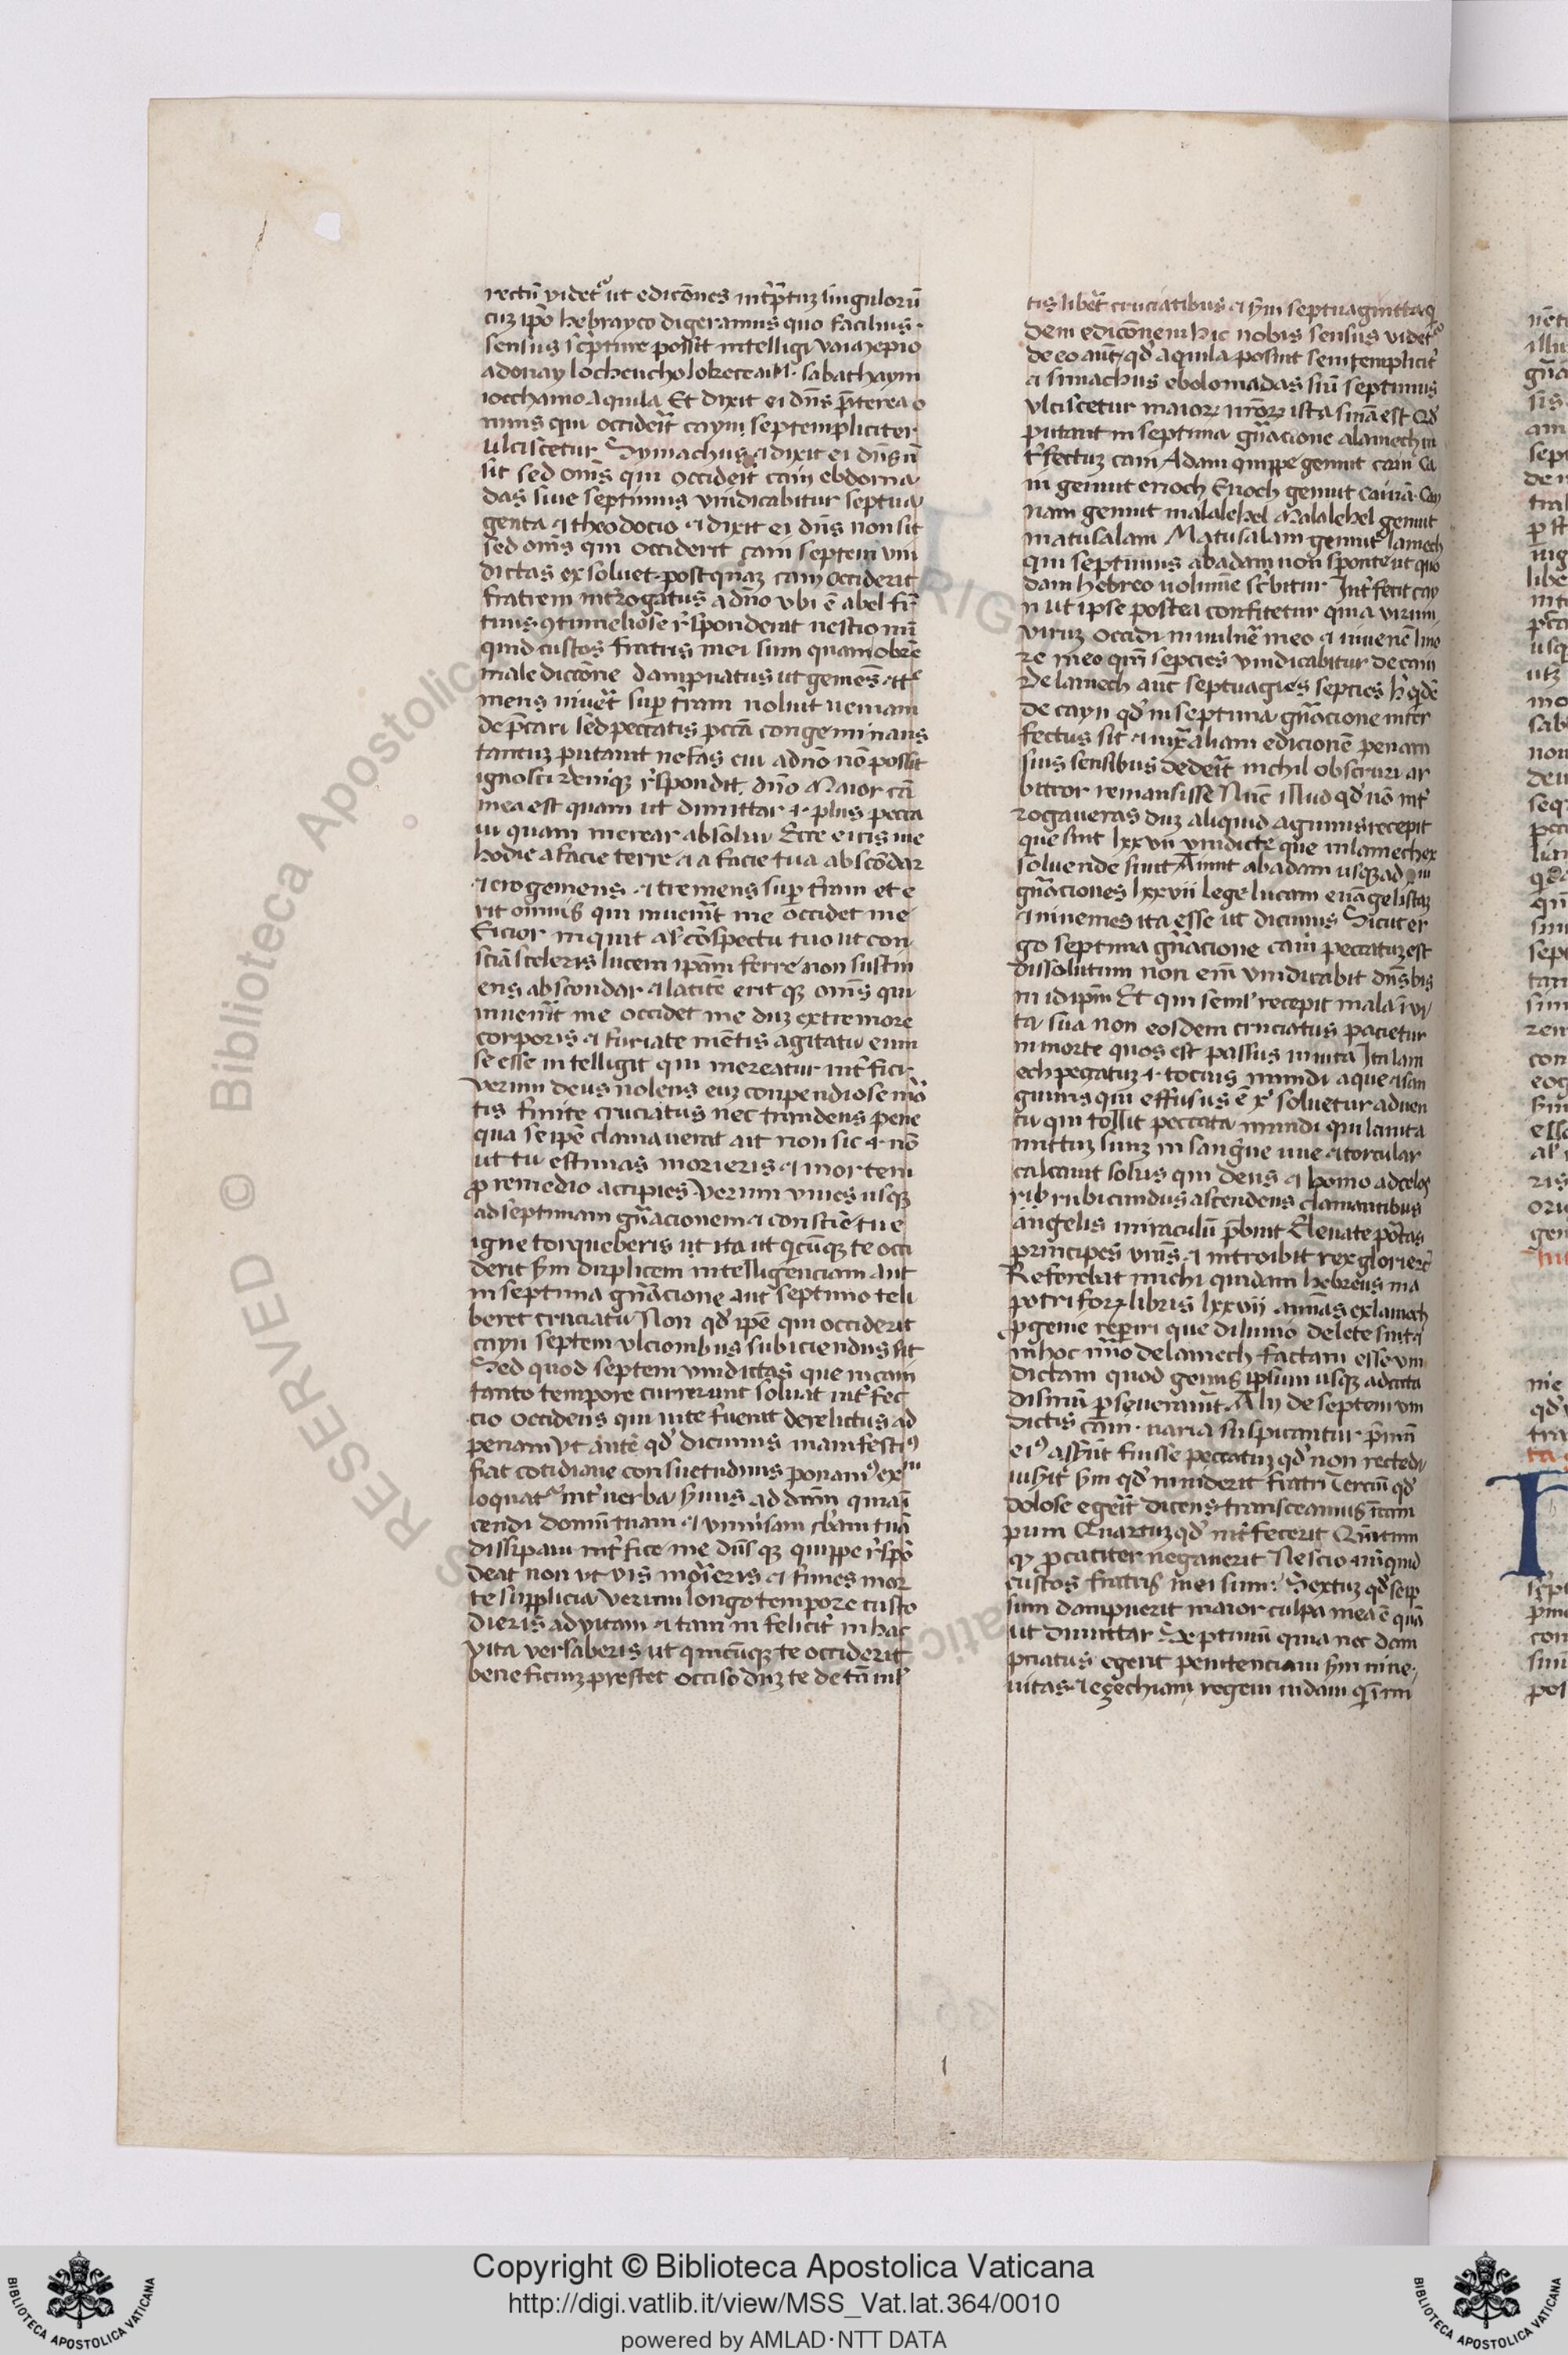 rectū videtᵒ ut edicōnes int̄p̄tuz singulorū
cuz ip̄o hebrayco digeramus quo facilius
sensus sc̄pture possit intelligi vaiazepio
adonay locheucho
sabathaym
ioechamo Aquila Et dixit ei dn̄s p̄terea o
mnis qui occideīt caym septempliciter
ulciscetur Symachus ⁊ dixit ei dn̄s ū
sit sed om̄s qui occideīt caim ebdoma
das siue septimus vindicabitur septua
genta ⁊ theodocio ⁊ dixit ei dn̄s non sit
sed om̄s qui occiderit caim septem vin
dictas exsoluet postqnaz caim occiderit
fratrem int̄rogatus a dn̄o vbi ē abel fr̄
tuus ꝯtumeliose r̄sponderat nescio nū
quid custos fratris mei sum quamobrē
male diccōne dampnatus ut gemēs ⁊ t
mens uiuet sup t̄ram noluit ueniam
de p̄cari sed peccatis pctā congeminans
tantuz putauit nefas cui a dn̄o nō possit
ignosci deniqz r̄spondit dn̄o Maior cā
mea est quam ut dimittar ⁊ plus pecca
ui quam merear absolui Ecce eicis me
hodie a facie terre ⁊ a facie tua abscōdar
⁊ ero gemens ⁊ tremens sup t̄ram et e
rit omnis qui inuen̄it me occidet me
Eicior inquit a cōspectu tuo ut con
sciā sceleris lucem ip̄am ferre non sustin
ens abscondar ⁊ latitē erit qz om̄s qui
inuen̄it me occidet me duz ex tremore
corporis ⁊ furiate mētis agitatu eum
se esse intelligit qui mereatur int̄fici
Verum deus nolens euz conpendiose mo
tis finire cruciatus nec tradens pene
qua se ipē clamauerat ait non sic ⁊ nō
ut tu estimas morieris ⁊ mortem
ꝓ remedio accipies Verum viues usqz
ad septimam gn̄acionem ⁊ consciē tue
igne torqueberis ut ita ut qicūqz te occi
derit s̄m duplicem intelligenciam aut
in septima gn̄acione aut septimo te li
beret cruciatu Non qd̄ ipē qui occiderit
cayn septem vlcionibus subiciendus sit
Sed quod septem vindictas que in caim
tanto tempore cucurrerunt soluat int̄fec
cio occidens qui uite fuerat derelictus ad
penam Vt autē qd̄ dicimus manifestiꝰ
fiat cotidiane consuetudinis ponamꝰ ex
loquatᵒ int̄ uerba s̄uus ad dn̄m q̄ ma ī
cendi domū tuam ⁊ vniu̇sam sb̄am tuā
dissipaui int̄fice me dn̄s qz quippe r̄spō
deat non ut vis moīeris ⁊ fines mor
te supplicia Verum longo tempore custo
dieris ad vitam ⁊ tam in felicit̄ in hac
vita versaberis ut quicūqz te occiderit
beneficiuz prestet occiso duz te de tā ml̄
tis libet̄ cruciatibus ⁊ s̄m septuagintta q̄
dem edicōnem hic nobis sensus videtᵒ
de eo aut̄ qd̄ aquila posuit septempliciī
⁊ simachus ebolomadas siū septimus
vlciscetur maiorꝝ nrōrꝝ ista sīna est Qd̄
putant in septima gn̄acione a lamech in
t̄fectuz cain Adam quippe genuit cain Ca
in genuit enoch Enoch genuit cainā Cay
nam genuit malalehel Malalehel genuit
matusalam Matusalam genuit lamech
qui septimus ab adam non sponte ut quo
dam hebreo uolumīe sc̄bitur Int̄fecit cay
n ut ipse postea confitetur quia virum
viruz occidi in uulnē meo ⁊ iuuenē liuo
re meo qm̄ sepcies vindicabitur de cain
De lamech aut̄ septuagies sepcies h̄ qdē
de cayn qd̄ in septima gn̄acione inter
fectus sit ⁊ iux̄ aliam edicionē penam
suis sensibus dederit nichil obscuri ar
bitror remansisse Nūc illud qd̄ nō int̄
rogaueras duz aliquid agimus recepit
que sint lxxvii vindicte que in lamech ex
soluende sint Aiunt ab adam usqz ad
gn̄aciones lxxvii lege lucam euāgelistaz
⁊ inuenies ita esse ut dicimus Sicut er
go septima gn̄acione caim peccatuz est
dissolutum non em̄ vindicabit dn̄s bis
in idip̄m Et qui seml̄ recepit mala ī vi
ta sua non eosdem cruciatus pacietur
in morte quos est passus in uita Ita lam
ech pegatuz ⁊ tocius mundi aque ⁊ san
guinis qui effusus ē xo soluetur aduen
tu qui tollit peccata mundi qui lauita
mittuz suuz in sangūe uue ⁊ torcular
calcauit solus qui deus ⁊ homo ad celos
rubicundus ascendens clamantibus
angelis miraculū p̄buit Eleuate portas
principes vr̄as ⁊ introibit rex glorie
Referebat michi quidam hebreus in a
pocriforꝝ libris lxxvii animas ex lamech
ꝓgenie repiri que diluuio delete sint ⁊
in hoc nūo de lamech factam esse vin
dictam quod genus ipsum usqz ad cata
dismū pseuerauīt Alij de septem vin
dictis cāin varia suspicantur p̄mū
eiꝰ asr̄unt fuisse peccatuz qd̄ non recte di
uisit s̄m qd̄ inuiderit fratri Terciū qd̄
dolose egerit dicens transceamus ī cam
pum Quartuz qd̄ int̄fecerit Quītum
qꝫ procaciter negauerit Nescio nūquid
custos fratris mei sum Sextuz qd̄ seip
sum dampuerit maior culpa mea ē quā
ut dimittar Septimū quia nec dam
pnatus egerit penitenciam s̄m nine
uitas ⁊ ezechiam regem iudam
Copyright © Biblioteca Apostolica Vaticana
http://digi.vatlib.it/view/MSS_Vat.lat.364/0010
powered by AMLAD·NTT DATA